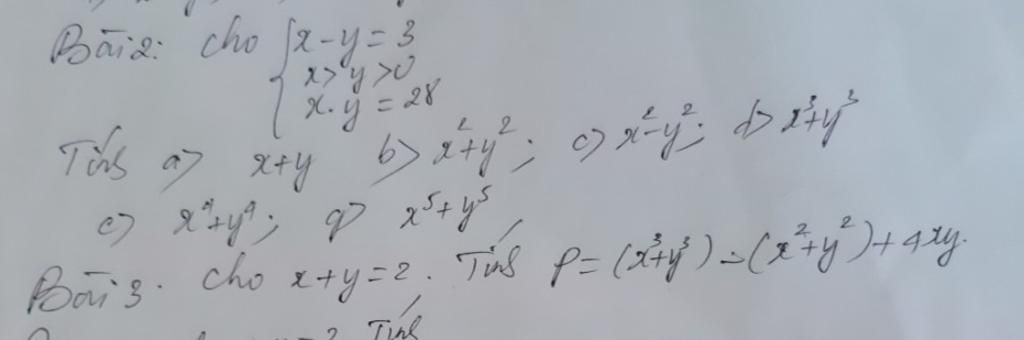 Bài 2: Cho { x - y = 3
x > y > 0
x . y = 28
Tính a) x + y b) x² + y²; c) x² - y²; d) x³ + y³
e) x⁴ + y⁴; g) x⁵ + y⁵
Bài 3. Cho x + y = 2. Tính P = (x³ + y³) - (x² + y²) + 4xy.
Tính